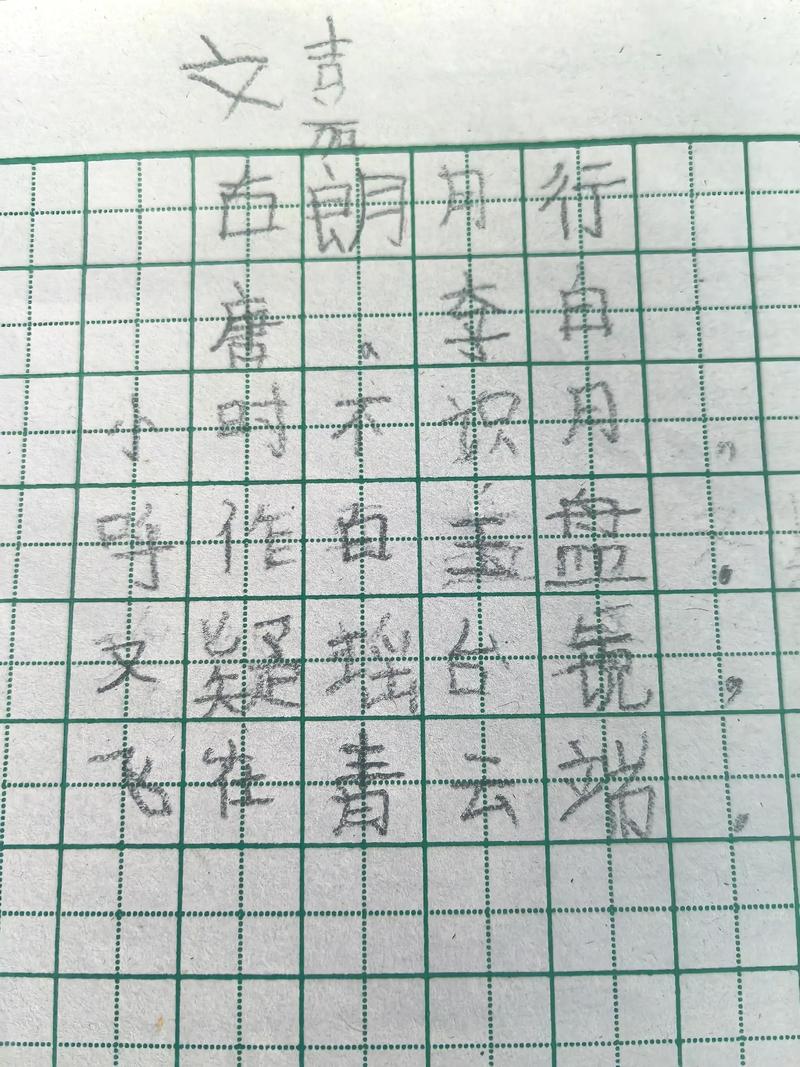 文喜
古朗月行
唐。李白
小时不识月，
呼作白玉盘。
又疑瑶台镜，
飞在青云端。